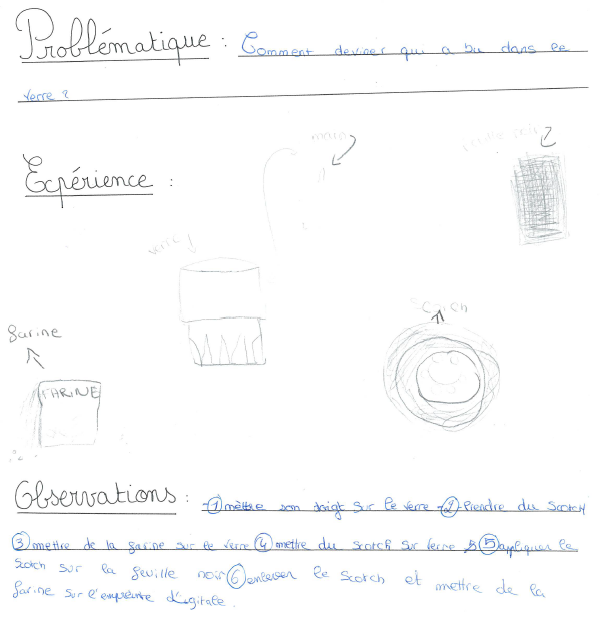 Problématique : Comment deviner qui a bu dans le
verre ?
main
feuille noir
Expérience :
verre
Scotch
farine
FARINE
Observations : -① mettre son doigt sur le verre -② Prendre du Scotch
③ mettre de la farine sur le verre ④ mettre du scotch sur verre ⑤ appliquer le
Scotch sur la feuille noir ⑥ enlever le Scotch et mettre de la
farine sur l'empreinte d'igitale.